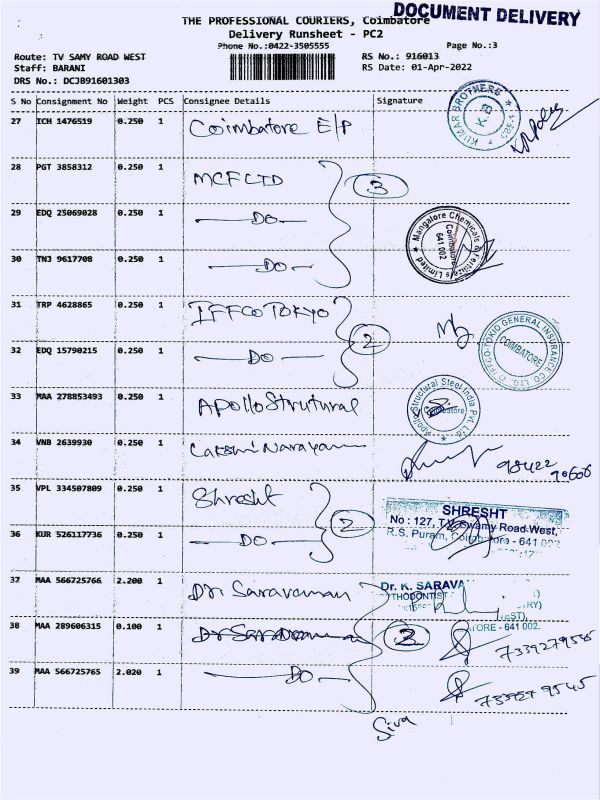 DOCUMENT DELIVERY
THE PROFESSIONAL COURIERS, Coimbatore
Delivery Runsheet - PC2
Phone No.:0422-3505555
Page No.:3
Route: TV SAMY ROAD WEST
RS No.: 916013
Staff: BARANI
RS Date: 01-Apr-2022
DRS No.: DCJB91601303
S No Consignment No Weight PCS Consignee Details Signature
KUMAR BROTHERS
K.B
27 ICH 1476519 0.250 1 Coimbatore E/P
28 PGT 3858312 0.250 1 MCFLTD
3
29 EDQ 25069028 0.250 1 DO
Mangalore Chemicals & Fertilizers Limited
Coimbatore
641 002
30 TNJ 9617708 0.250 1 DO
31 TRP 4628865 0.250 1 IFFCO TOKYO
2
IFFCO-TOKIO GENERAL INSURANCE CO LTD.
COIMBATORE
32 EDQ 15790215 0.250 1 DO
33 MAA 278853493 0.250 1 Apollo Strutural
Apollo Structural Steel India Pvt. Ltd.
Coimbatore
34 VNB 2639930 0.250 1 Lakshmi Narayan
98422
90606
35 VPL 334507809 0.250 1 Shresht
2
SHRESHT
No : 127, T.V. Swamy Road-West,
R.S. Puram, Coimbatore - 641 002
36 KUR 526117736 0.250 1 DO
37 MAA 566725766 2.200 1 Dr Saravanan
Dr. K. SARAVA
THODONTIST
ORE - 641 002.
38 MAA 289606315 0.100 1 Dr Saravanan
3
39 MAA 566725765 2.020 1 DO
7339279545
Siva